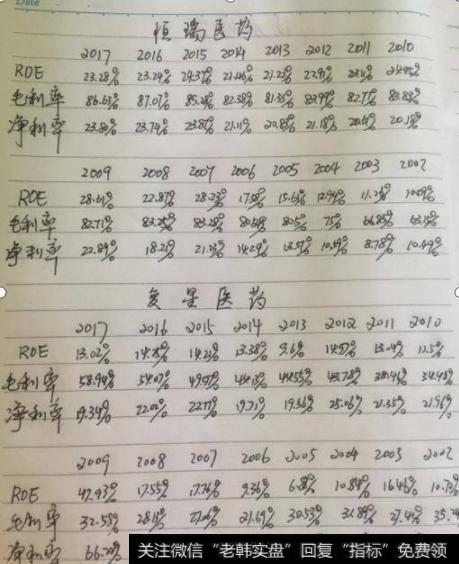 Date
恒瑞医药
2017 2016 2015 2014 2013 2012 2011 2010
ROE 23.28% 23.24% 24.37% 21.23% 22.91%
毛利率 86.63% 87.07% 85.28% 82.38% 81.35% 83.99% 82.77% 83.83%
净利率 23.80% 23.74% 23.87% 21.11% 21.18% 20.18%
2009 2008 2007 2006 2005 2004 2003 2002
ROE 28.61% 22.87% 28.23% 15.63% 12.94% 11.24% 10.09%
毛利率 82.71% 83.28% 80.5% 75% 66.85% 63.15%
净利率 22.89% 18.21% 21.33% 14.29% 13.57% 10.59% 8.78% 10.49%
复星医药
2017 2016 2015 2014 2013 2012 2011 2010
ROE 13.02% 14.28% 14.23% 13.38% 14.57% 12.5%
毛利率 58.94% 54.07% 49.97% 44.13% 44.55% 43.78% 38.46% 34.48%
净利率 19.34% 22.02% 22.77% 19.71% 19.56% 25.06% 21.35% 21.96%
2009 2008 2007 2006 2005 2004 2003 2002
ROE 47.93% 17.55% 17.76% 9.36% 10.84% 16.46%
毛利率 32.58% 28.13% 31.69% 30.53% 31.89% 27.4%
净利率 66.20%
关注微信“老韩实盘”回复“指标”免费领